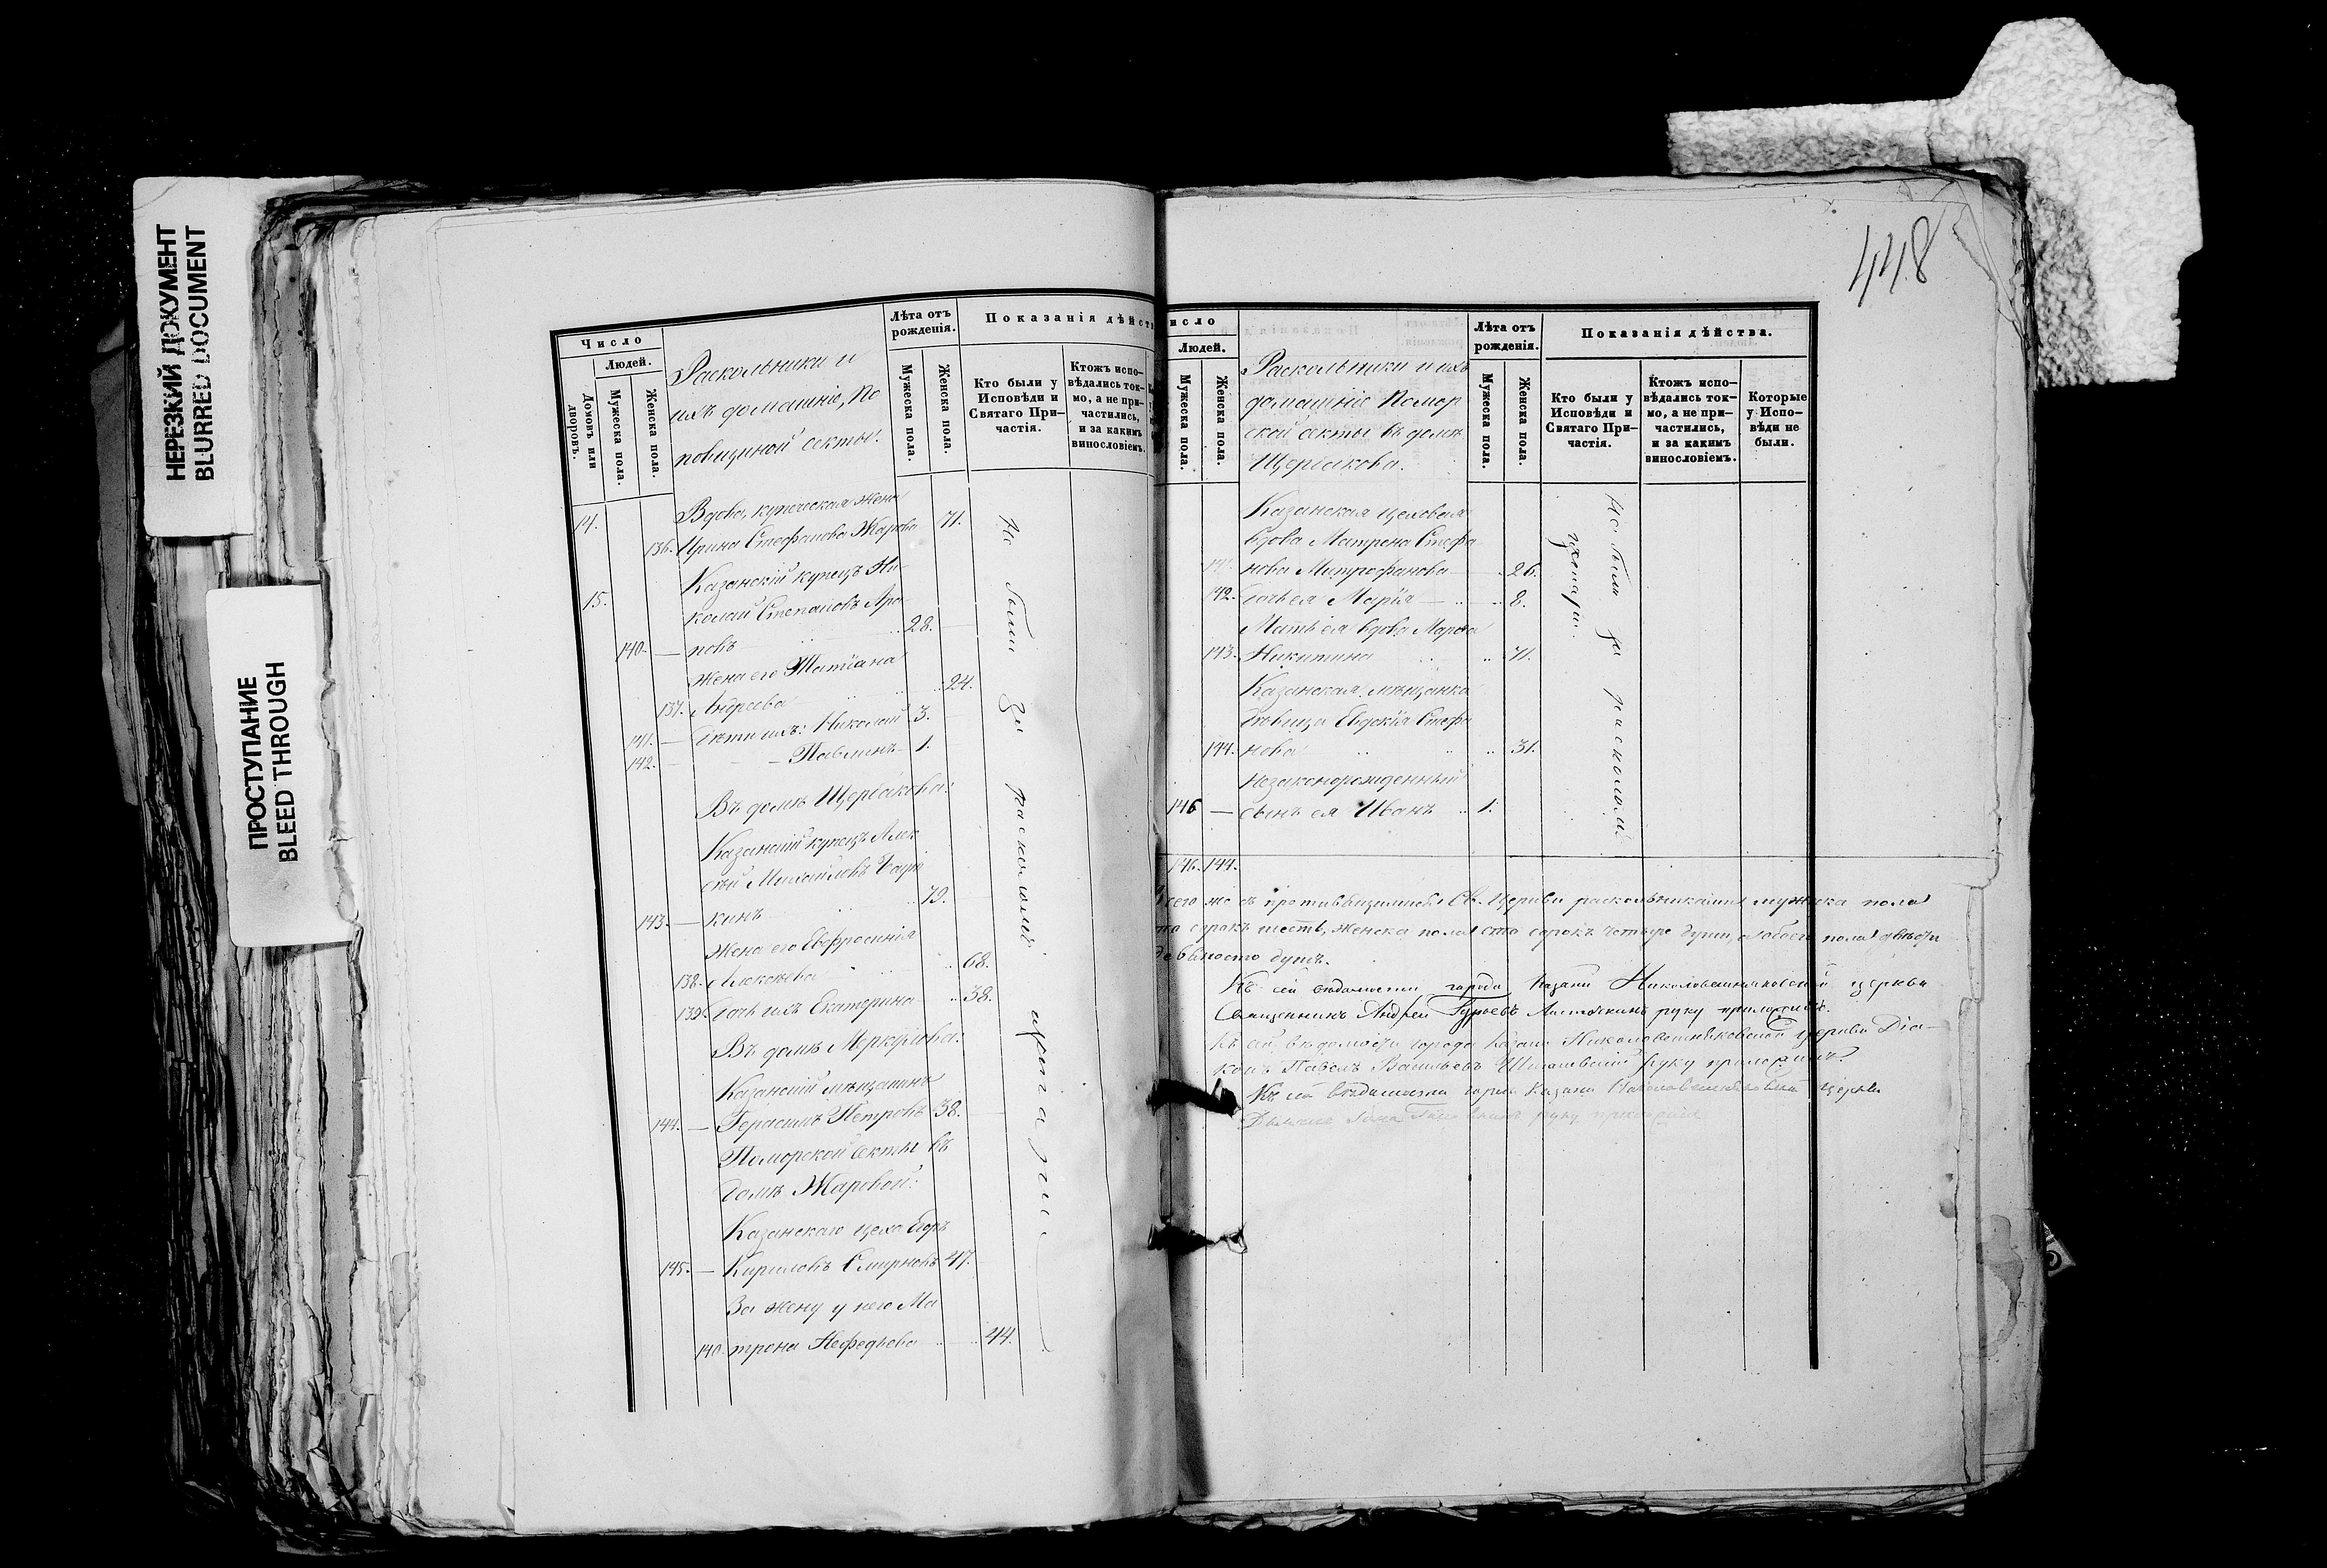 НЕРЕЗКИЙ ДОКУМЕНТ
BLURRED DOCUMENT
ПРОСТУПАНИЕ
BLEED THROUGH
Число
Людей.
Домовъ или дворовъ.
Мужеска пола.
Женска пола.
Раскольники и
ихъ домашніе, По
повщиной секты.
Лѣта отъ рожденія.
Мужеска пола.
Женска пола.
Показанія дѣйст
Кто были у Исповѣди и Святаго При-
частія.
Ктожъ испо-
вѣдались ток-
мо, а не при-
частились,
и за какимъ
винословіемъ.
14.
Вдова, купеческая жена
136. Ирина Стефанова Жарова 71.
15.
Казанскій купецъ Ни
колай Степановъ Ара
140. — повъ 28.
Жена его Татіана
137. Андреева 24.
141. — Дѣти ихъ: Николай 3.
142. — Павлинъ 1.
Въ домѣ Щербакова:
Казанскій купецъ Але
ксѣй Михайловъ
143. — кинъ 79.
Жена его Евфросинія
138. Алексѣева 68.
139. Дочь ихъ Екатерина 38.
Въ домѣ Меркулова:
Казанскій мѣщанинъ
144. — Герасимъ Петровъ 38.
Поморской секты въ
домѣ Жаровой:
Казанскаго цеха Егоръ
145. — Кириловъ Смирновъ 47.
За жену у него Ма
140. трона Нефедьева 44.
Не были за расколомъ
448
исло
Людей.
Мужеска пола.
Женска пола.
Раскольники и ихъ
домашніе Помор
ской секты въ домѣ
Щербакова.
Лѣта отъ рожденія.
Мужеска пола.
Женска пола.
Показанія дѣйства.
Кто были у Исповѣди и Святаго При-
частія.
Ктожъ испо-
вѣдались ток-
мо, а не при-
частились,
и за какимъ
винословіемъ.
Которые у Испо-
вѣди не были.
Казанская цеховая
вдова Матрона Стефа
нова Митрофанова 26.
142. Дочь ея Марія 8.
Мать ея вдова Марѳа
143. Никитина 71.
Казанская мѣщанка
дѣвица Евдокія Стефа
144. нова 31.
Незаконорожденный
146 — сынъ ея Иванъ 1.
Не были за расколомъ
146. 144.
сего же съ противляющимися Св. Церкви раскольниками мужеска пола
сто сорокъ шесть, женска пола сто сорокъ четыре души, а обоего пола двѣсти
девяносто душъ.
Къ сей вѣдомости города Казани Николовешняковской церкви
Священникъ Андрей Гурьевъ руку приложилъ.
Къ сей вѣдомости города Казани Николовешняковской церкви Діа-
конъ Павелъ Васильевъ руку приложилъ.
Къ сей вѣдомости города Казани Николовешняковской церкви
руку приложилъ